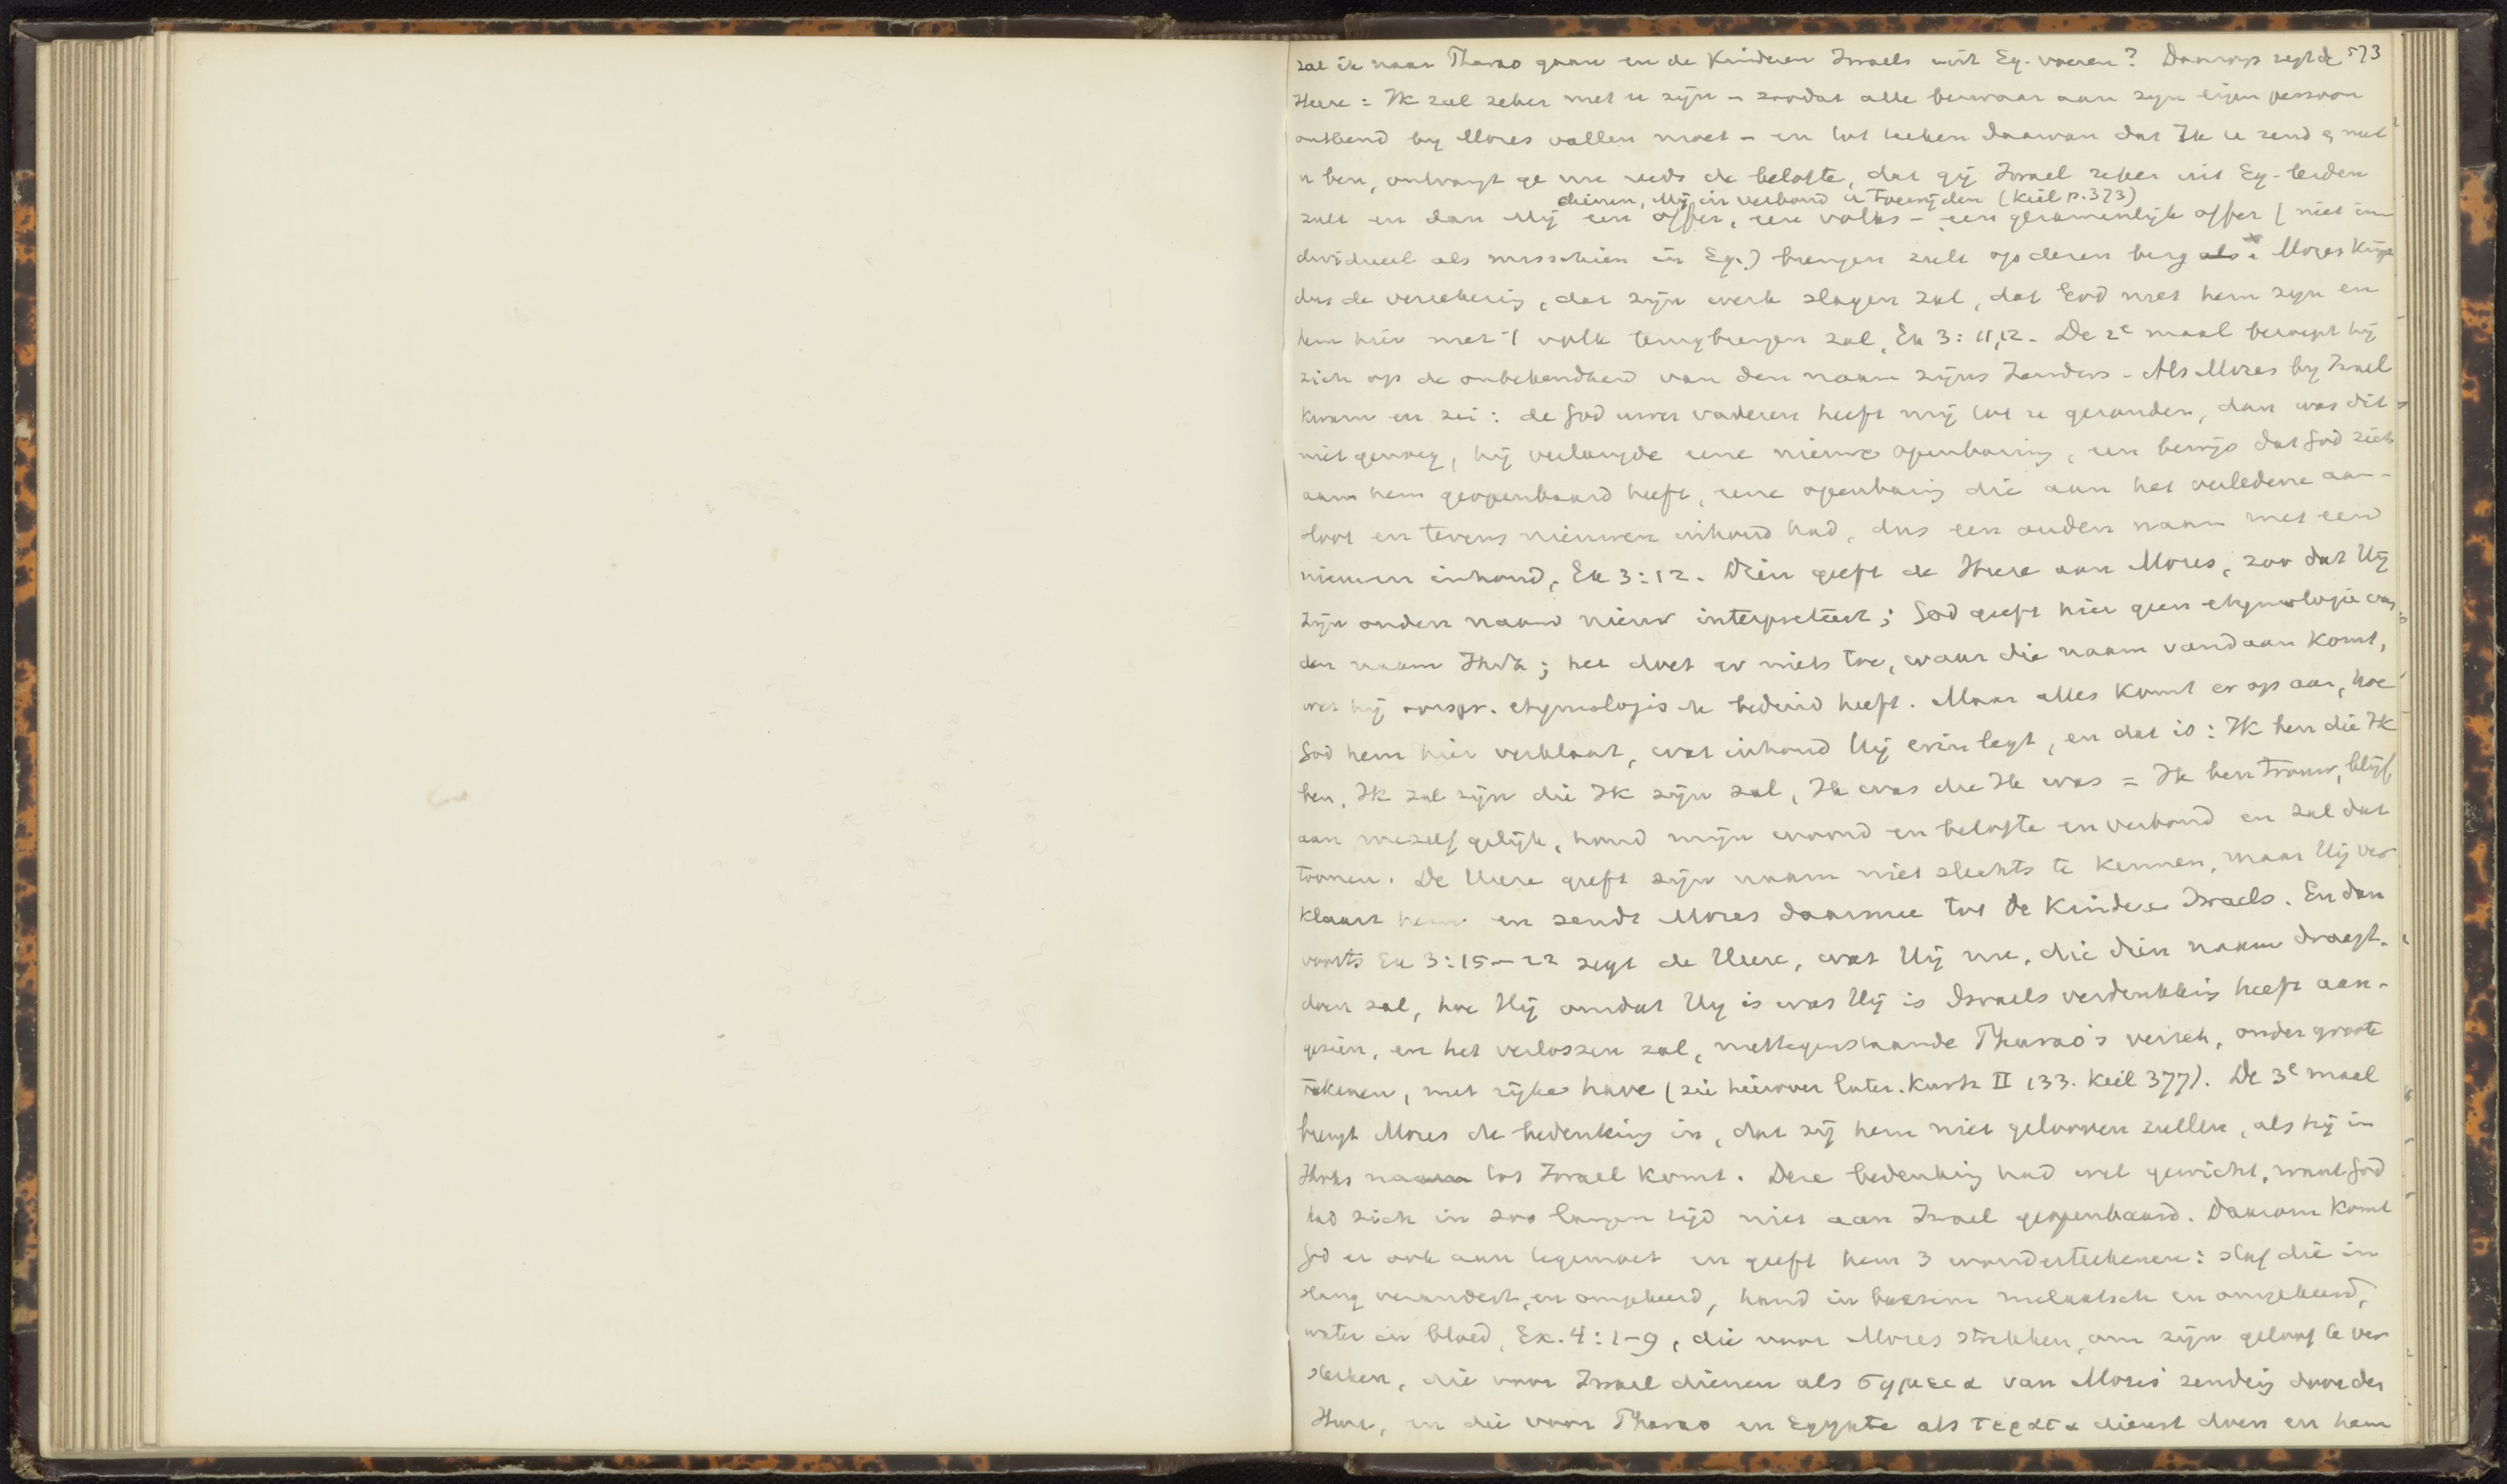 573
zal ik naar Pharao gaan en de Kinderen Israels uit Eg. voeren? Daarop zegt de
Heere: Ik zal zeker met u zijn – zoodat alle bezwaar aan zijn eigen persoon
ontleend by Mozes vallen moet – en tot teeken daarvan dat Ik u zend & met
u ben, ontvangt ge nu reeds de belofte, dat gij Israel zeker uit Eg. leiden
dienen, Mij in verbond u toewijden (Keil p. 373)
zult en dan Mij een offer, een volks – een gezamenlijk offer (niet in-
dividueel als misschien in Eg.) brengen zult op dezen berg als Mozes krijgt
dus de verzekering, dat zijn werk slagen zal, dat God met hem zijn en
hem hier met 't volk terugbrengen zal, Ex 3:11,12. De 2e maal beroept hij
zich op de onbekendheid van den naam zijns Zenders. Als Mozes by Israel
kwam en zei: de God uwer vaderen heeft mij tot u gezonden, dan was dit
niet genoeg, hij verlangde eene nieuwe openbaring, een bewijs dat God zich
aan hem geopenbaard heeft, eene openbaring die aan het verledene aan-
sloot en tevens nieuwen inhoud had, dus een ouden naam met een
nieuwen inhoud, Ex 3:12. Dien geeft de Heere aan Mozes, zoo dat Hij
zijn ouden naam nieuw interpreteert; God geeft hier geen etymologie van
den naam Jhvh; het doet er niets toe, waar die naam vandaan komt,
wat hij oorspr. etymologisch beduid heeft. Maar alles komt er op aan, hoe
God hem hier verklaart, wat inhoud Hij erin legt, en dat is: Ik ben die Ik
ben, Ik zal zijn die Ik zijn zal, Ik was die Ik was = Ik ben trouw, blijf
aan mezelf gelijk, houd mijn woord en belofte en verbond en zal dat
toonen. De Heere geeft zijn naam niet slechts te kennen, maar Hij ver
klaart hem en zendt Mozes daarmee tot de Kinderen Israels. En dan
voorts Ex 3:15–22 zegt de Heere, wat Hij nu, die dien naam draagt,
doen zal, hoe Hij omdat Hij is was Hij is Israels verdrukking heeft aan-
gezien, en het verlossen zal, niettegenstaande Pharao's verzet, onder groote
tekenen, met rijke have (zie hierover later. Kurtz II 133. Keil 377). De 3e maal
brengt Mozes de bedenking in, dat zij hem niet gelooven zullen, als hij in
Jhvhs naam tot Israel komt. Deze bedenking had wel gewicht, want God
had zich in zoo langen tijd niet aan Israel geopenbaard. Daarom komt
God er ook aan tegemoet en geeft hem 3 wonderteekenen: staf die in
slang verandert, en omgekeerd, hand in boezem melaatsch en omgekeerd,
water in bloed, Ex. 4:1–9, die voor Mozes strekken, om zijn geloof te ver
sterken, die voor Israel dienen als σημεια van Mozes' zending door den
Heere, en die voor Pharao en Egypte als τερατα dienst doen en hem